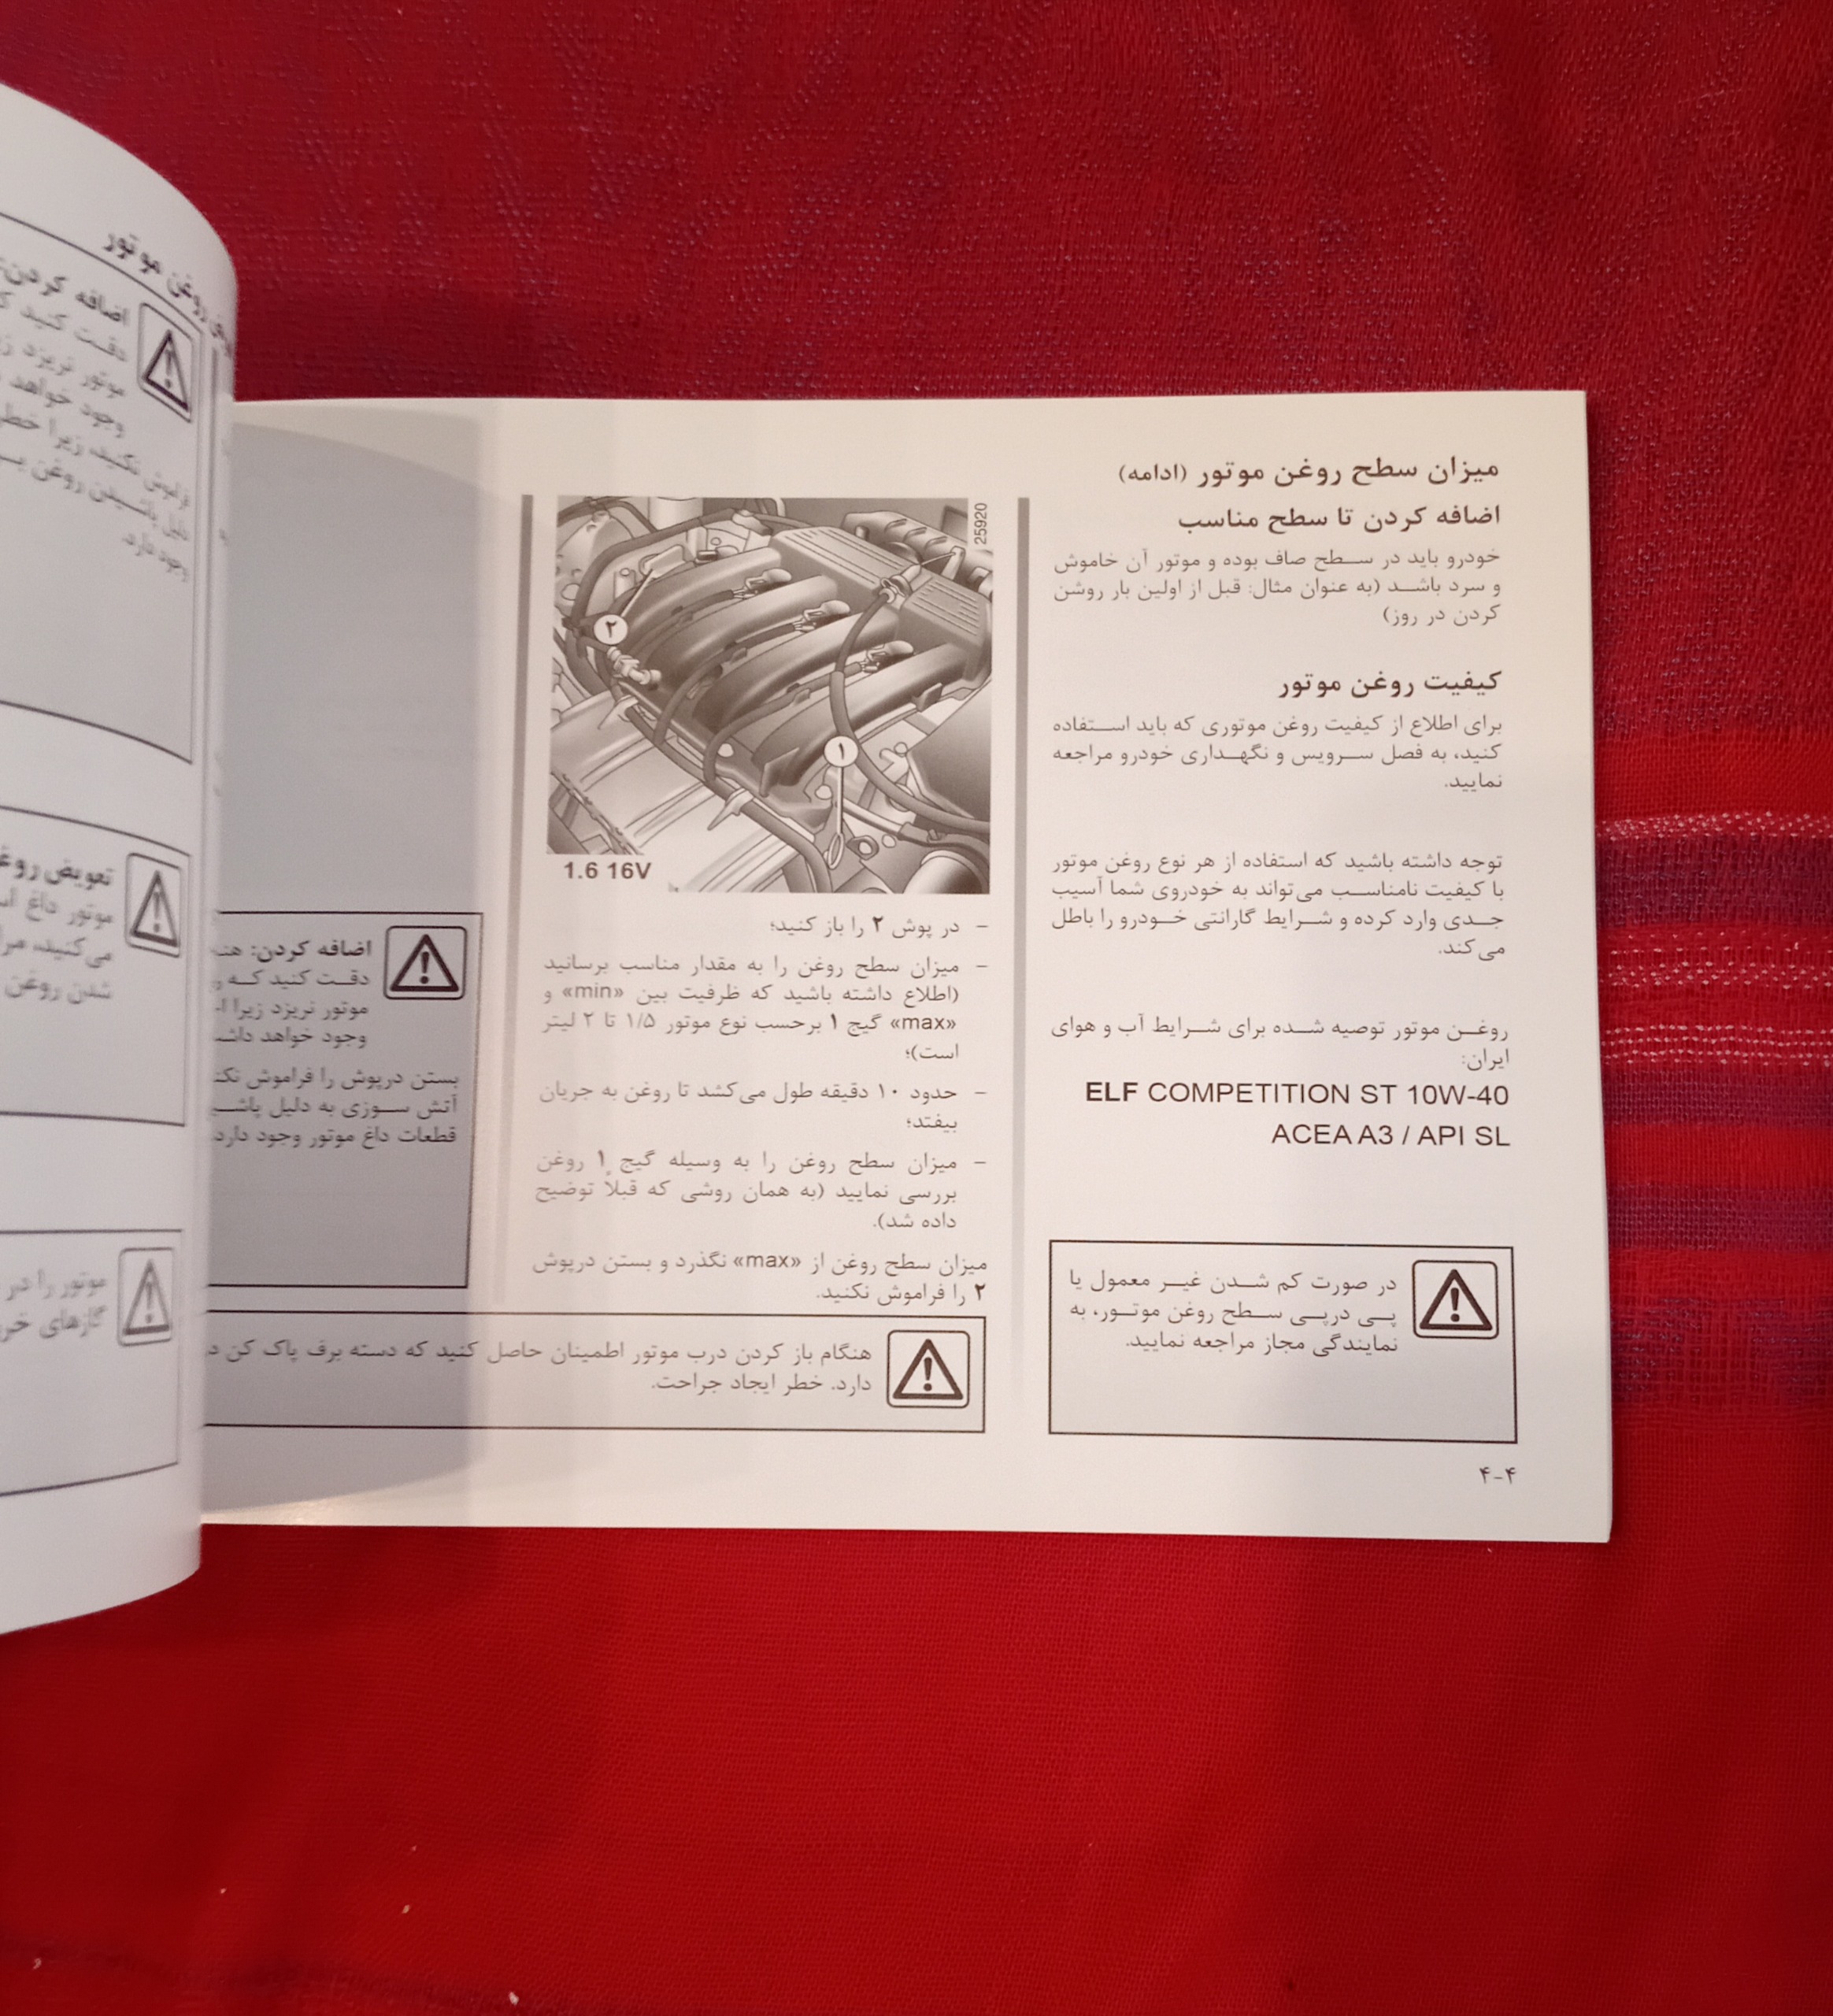 میزان سطح روغن موتور (ادامه)
اضافه کردن تا سطح مناسب
خودرو باید در سطح صاف بوده و موتور آن خاموش
و سرد باشد (به عنوان مثال: قبل از اولین بار روشن
کردن در روز)
کیفیت روغن موتور
برای اطلاع از کیفیت روغن موتوری که باید استفاده
کنید، به فصل سرویس و نگهداری خودرو مراجعه
نمایید.
توجه داشته باشید که استفاده از هر نوع روغن موتور
با کیفیت نامناسب می‌تواند به خودروی شما آسیب
جدی وارد کرده و شرایط گارانتی خودرو را باطل
می‌کند.
روغن موتور توصیه شده برای شرایط آب و هوای
ایران:
ELF COMPETITION ST 10W-40
ACEA A3 / API SL
در صورت کم شدن غیر معمول یا
پی درپی سطح روغن موتور، به
نمایندگی مجاز مراجعه نمایید.
۴-۴
25920
۲
۱
1.6 16V
– در پوش ۲ را باز کنید؛
– میزان سطح روغن را به مقدار مناسب برسانید
(اطلاع داشته باشید که ظرفیت بین «min» و
«max» گیج ۱ برحسب نوع موتور ۱/۵ تا ۲ لیتر
است)؛
– حدود ۱۰ دقیقه طول می‌کشد تا روغن به جریان
بیفتد؛
– میزان سطح روغن را به وسیله گیج ۱ روغن
بررسی نمایید (به همان روشی که قبلاً توضیح
داده شد).
میزان سطح روغن از «max» نگذرد و بستن درپوش
۲ را فراموش نکنید.
هنگام باز کردن درب موتور اطمینان حاصل کنید که دسته برف پاک کن
دارد. خطر ایجاد جراحت.
اضافه کردن:
دقت کنید که
موتور نریزد زیرا
وجود خواهد
بستن درپوش را فراموش
آتش سوزی به دلیل
قطعات داغ موتور وجود دارد.
روغن موتور
اضافه کردن:
دقت کنید
موتور نریزد
وجود خواهد
نکنید، زیرا خطر
دلیل پاشیدن روغن
وجود دارد.
تعویض
موتور داغ
می‌کنید،
شدن روغن
موتور را در
گازهای